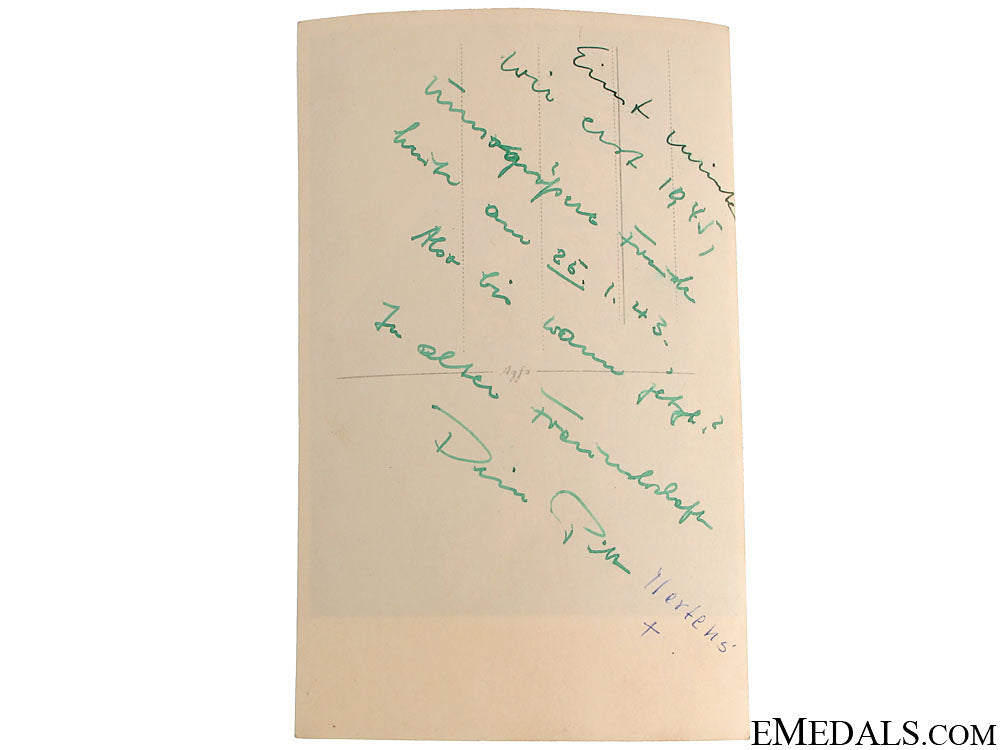 Einst
wir erst 1945,
umso größere Freude
heute am 25. 1. 43.
Also bis wann jetzt?
In alter Freundschaft
Dein Pitt
Mertens
+
Agfa
EMEDALS.COM